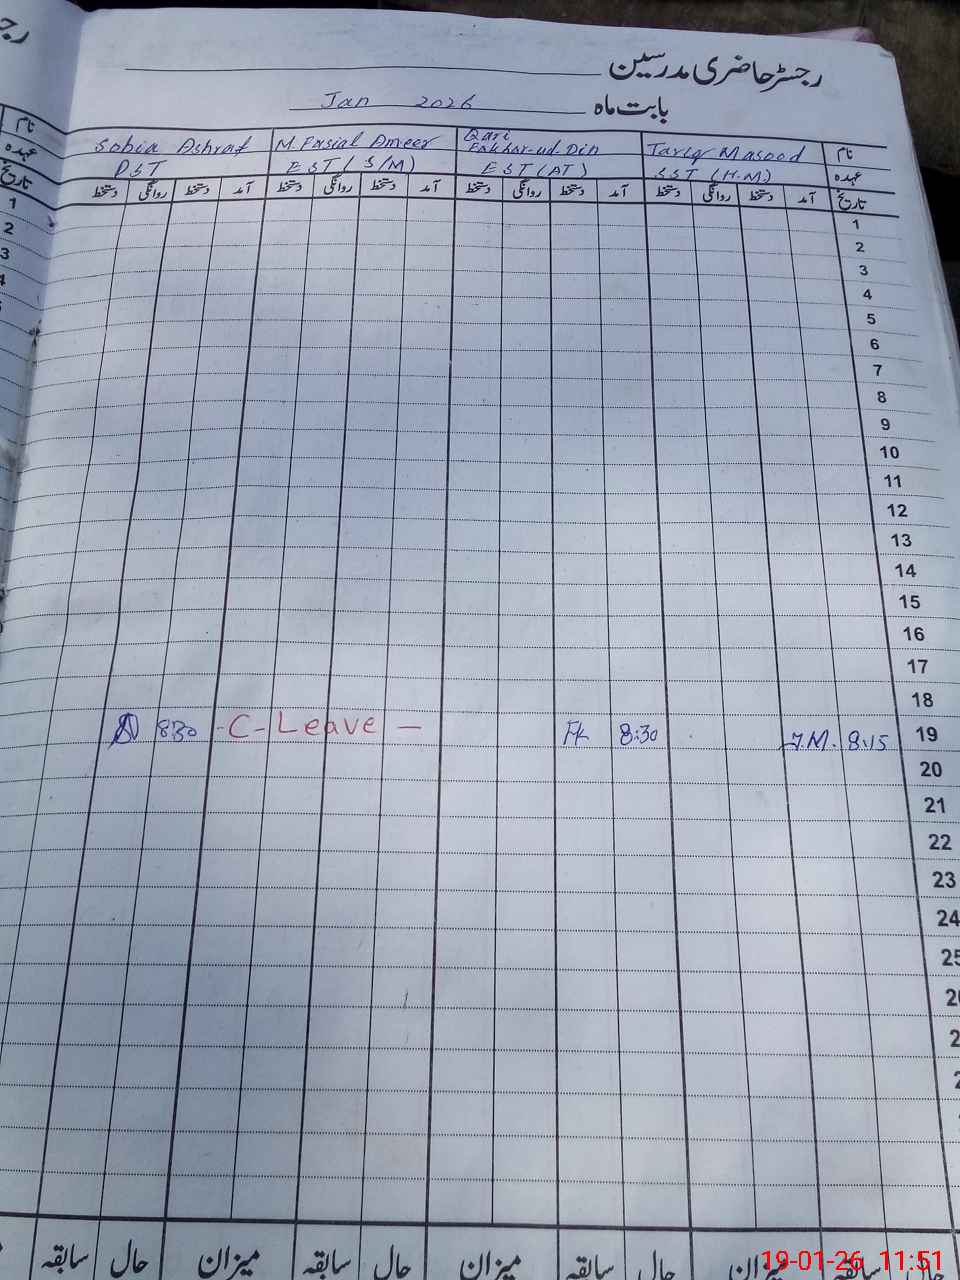 رجسٹر حاضری مدرسین
بابت ماہ Jan 2026
نام Tariq Masood Qari Fakhar-ud-Din M. Fasial Ameer Sobia Ashraf
عہدہ SST (H.M) EST (AT) EST (S/M) PST
تاریخ آمد دستخط روانگی دستخط آمد دستخط روانگی دستخط آمد دستخط روانگی دستخط آمد دستخط روانگی دستخط
1
2
3
4
5
6
7
8
9
10
11
12
13
14
15
16
17
18
19 8:15 T.M. 8:30 Fk - C - Leave — 8:30
20
21
22
23
24
25
حال سابقہ میزان حال سابقہ میزان حال سابقہ
19-01-26 11:51
نام
عہدہ
تاریخ
1
2
3